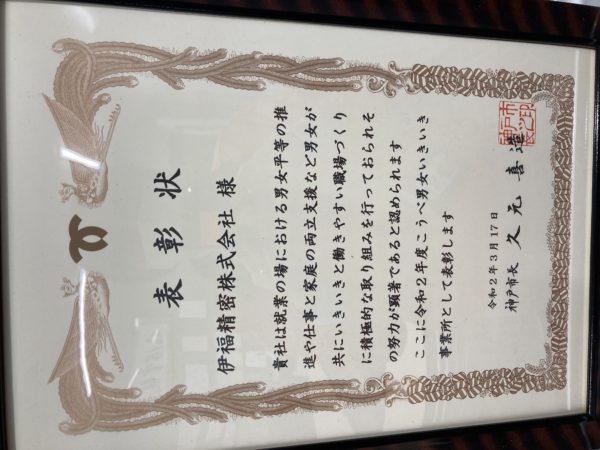 表彰状
伊福精密株式会社 様
貴社は就業の場における男女平等の推
進や仕事と家庭の両立支援など男女が
共にいきいきと働きやすい職場づくり
に積極的な取り組みを行っておられそ
の努力が顕著であると認められます
ここに令和2年度こうべ男女いきいき
事業所として表彰します
令和2年3月17日
神戸市長 久元喜造
神戸市長之印